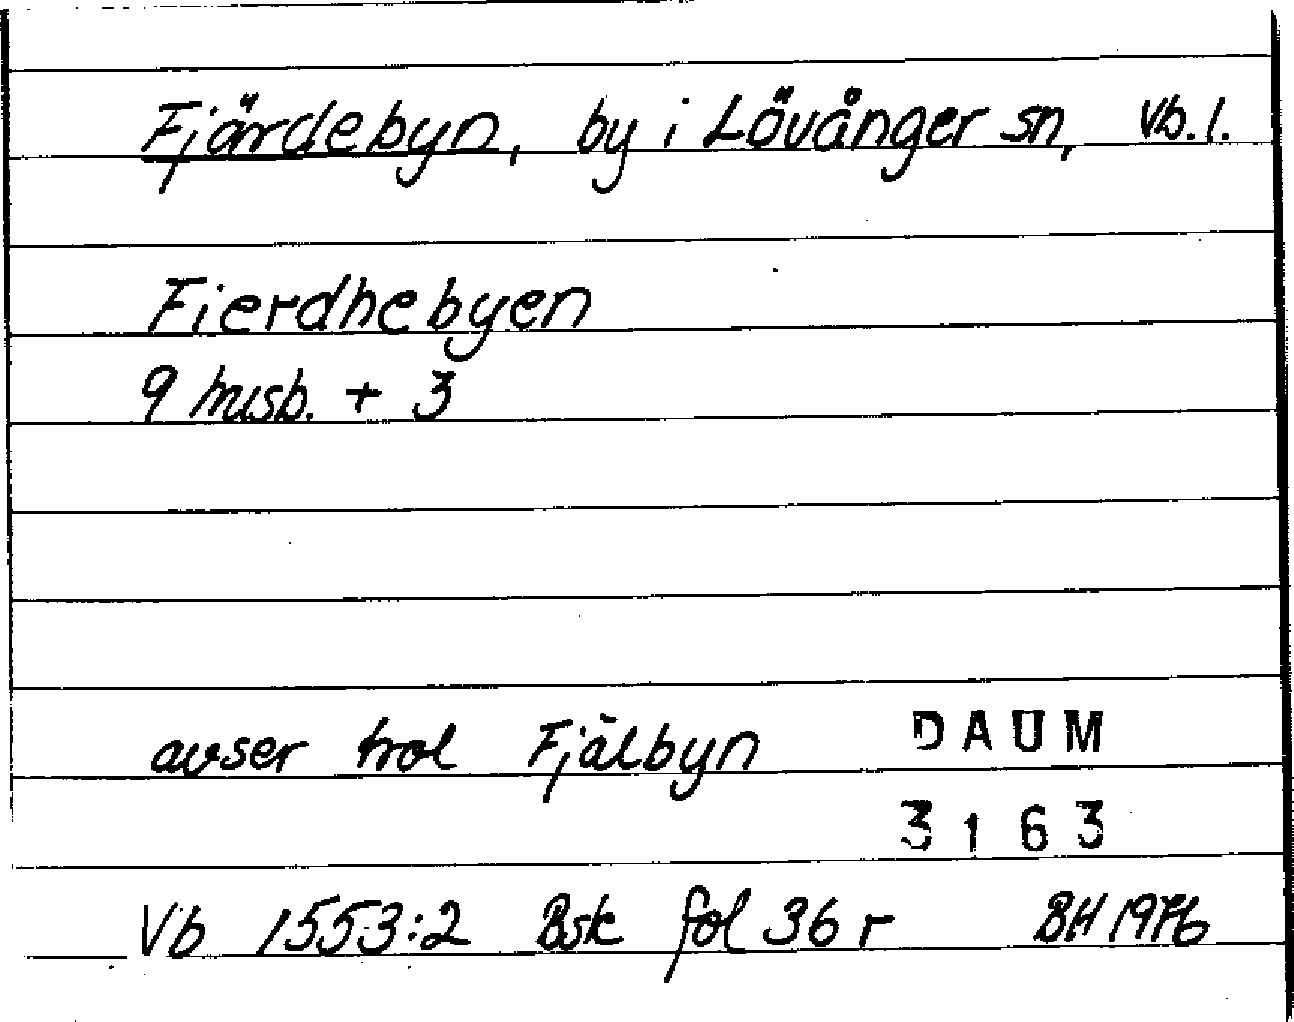 Fjärdebyn, by i Lövånger sn, Vb. l.
Fierdhebyen
9 husb. + 3
avser trol Fjälbyn
DAUM
3163
Vb 1553:2 Bsk fol 36 r BH 1976